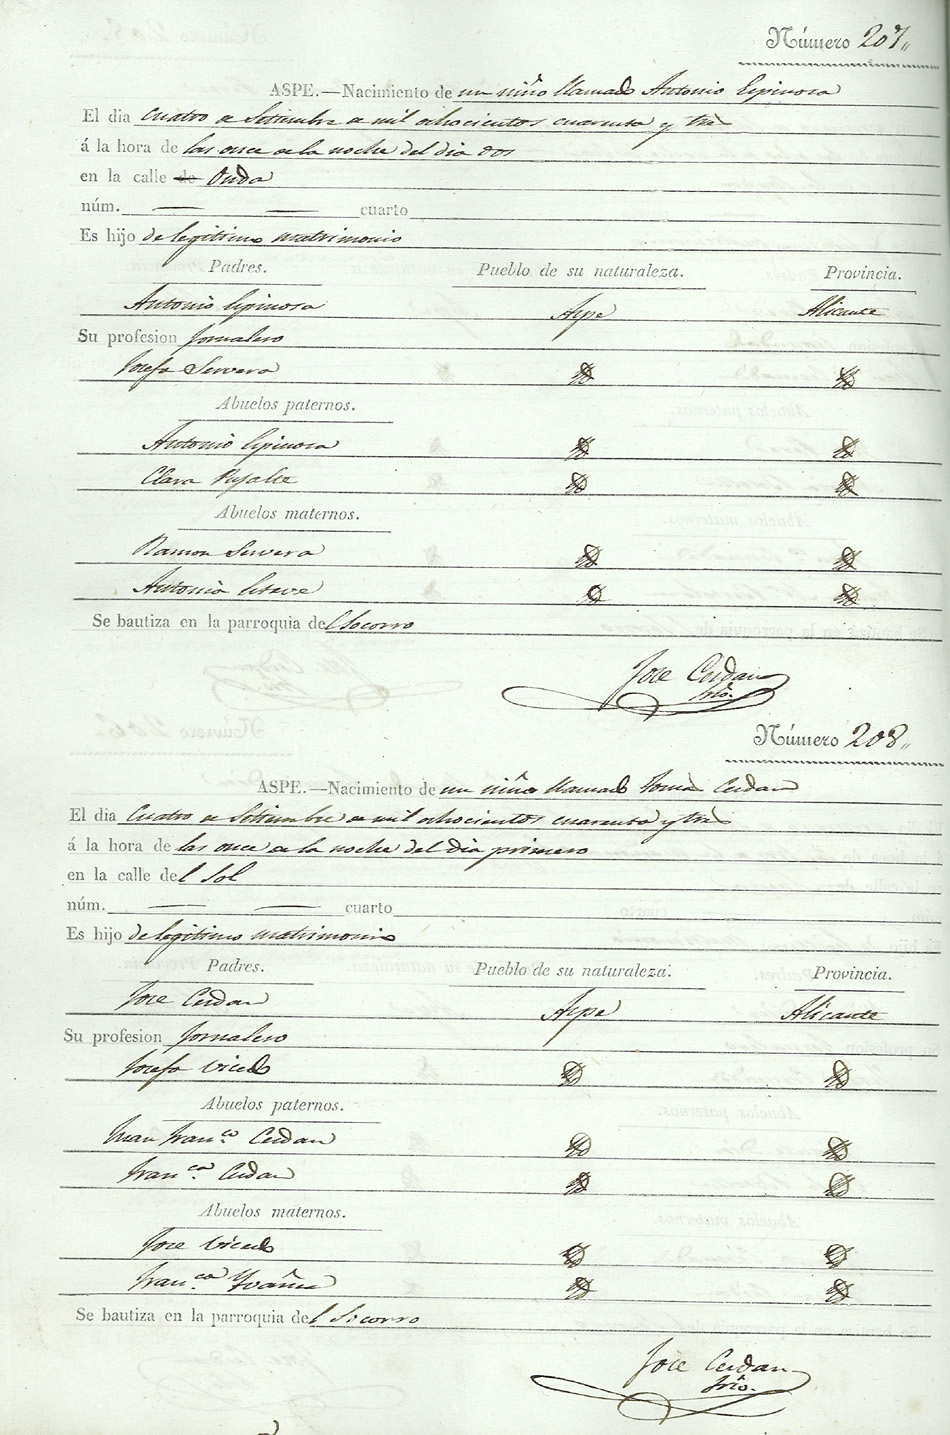 Número 207,,
ASPE.—Nacimiento de un niño llamado Antonio Espinosa
El dia cuatro de Setiembre de mil ochocientos cuarenta y tres
á la hora de las once de la noche del dia dos
en la calle de Onda
núm. — — cuarto
Es hijo de legitimo matrimonio
Padres. Pueblo de su naturaleza. Provincia.
Antonio Espinosa Aspe Alicante
Su profesion Jornalero
Josefa Servera Yd Yd
Abuelos paternos.
Antonio Espinosa Yd Yd
Clara Yd Yd
Abuelos maternos.
Ramon Servera Yd Yd
Antonia Esteve Yd Yd
Se bautiza en la parroquia del Socorro
Jose Cerdan
Srio.
Número 208,,
ASPE.—Nacimiento de un niño llamado Tomas Cerdan
El dia Cuatro de Setiembre de mil ochocientos cuarenta y tres
á la hora de las once de la noche del dia primero
en la calle del Sol
núm. — — cuarto
Es hijo de legitimo matrimonio
Padres. Pueblo de su naturaleza. Provincia.
Jose Cerdan Aspe Alicante
Su profesion Jornalero
Josefa Vicedo Yd Yd
Abuelos paternos.
Juan Fran.co Cerdan Yd Yd
Fran.ca Cerdan Yd Yd
Abuelos maternos.
Jose Vicedo Yd Yd
Fran.ca Yvañes Yd Yd
Se bautiza en la parroquia del Socorro
Jose Cerdan
Srio.